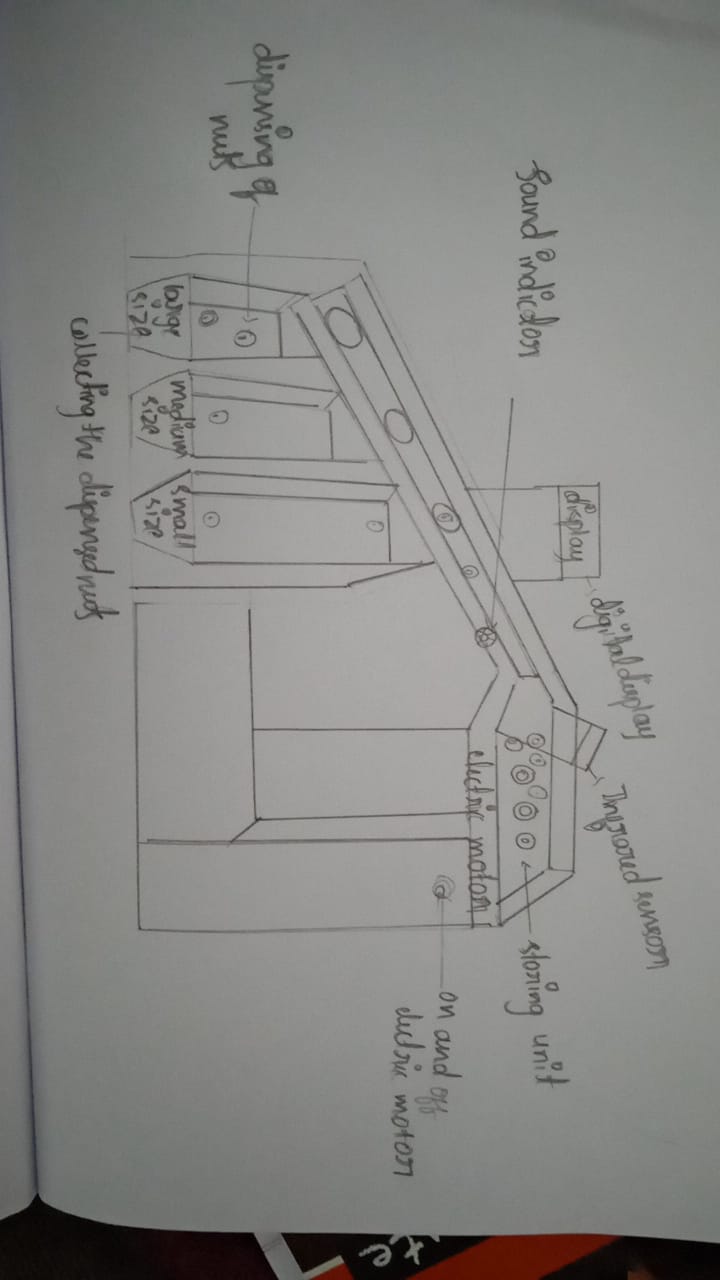 digital display
Infrared sensor
display
sound indicator
storing unit
electric motor
on and off
electric motor
dispensing of
nuts
large
size
medium
size
small
size
collecting the dispensed nuts
te